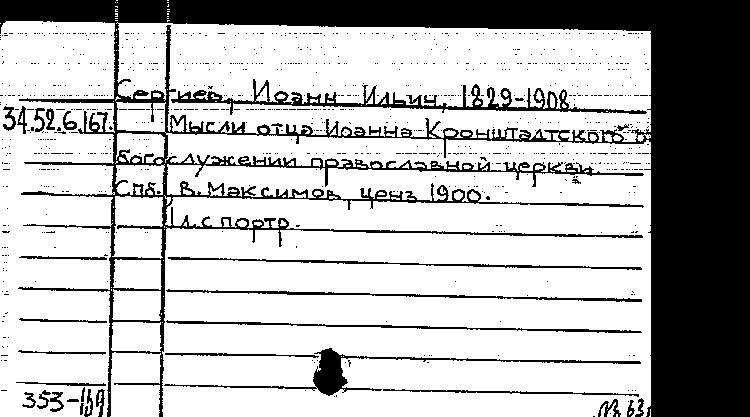 Сергиев, Иоанн Ильич, 1829-1908.
34.52.6.167. Мысли отца Иоанна Кронштадтского о
богослужении православной церкви.
Спб., В. Максимов, ценз 1900.
1 л. с портр.
353-169